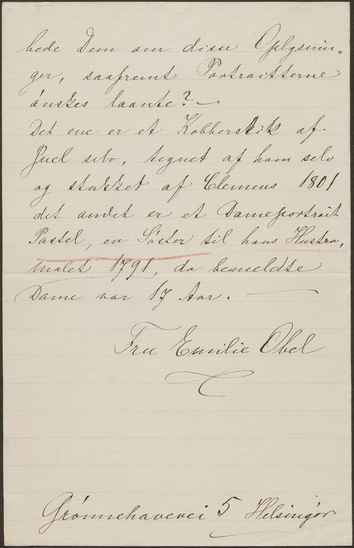 bede Dem om disse Oplysnin-
ger, saafremt Portraitterne
ønskes laante? —
Det ene er et Kobberstik af
Juel selv, tegnet af ham selv
og stukket af Clemens 1801
det andet er et Dameportrait
Pastel, en Søster til hans Hustru,
malet 1791, da bemeldte
Dame var 17 Aar. —
Fru Emilie Obel
Grønnehavevei 5 Helsingør